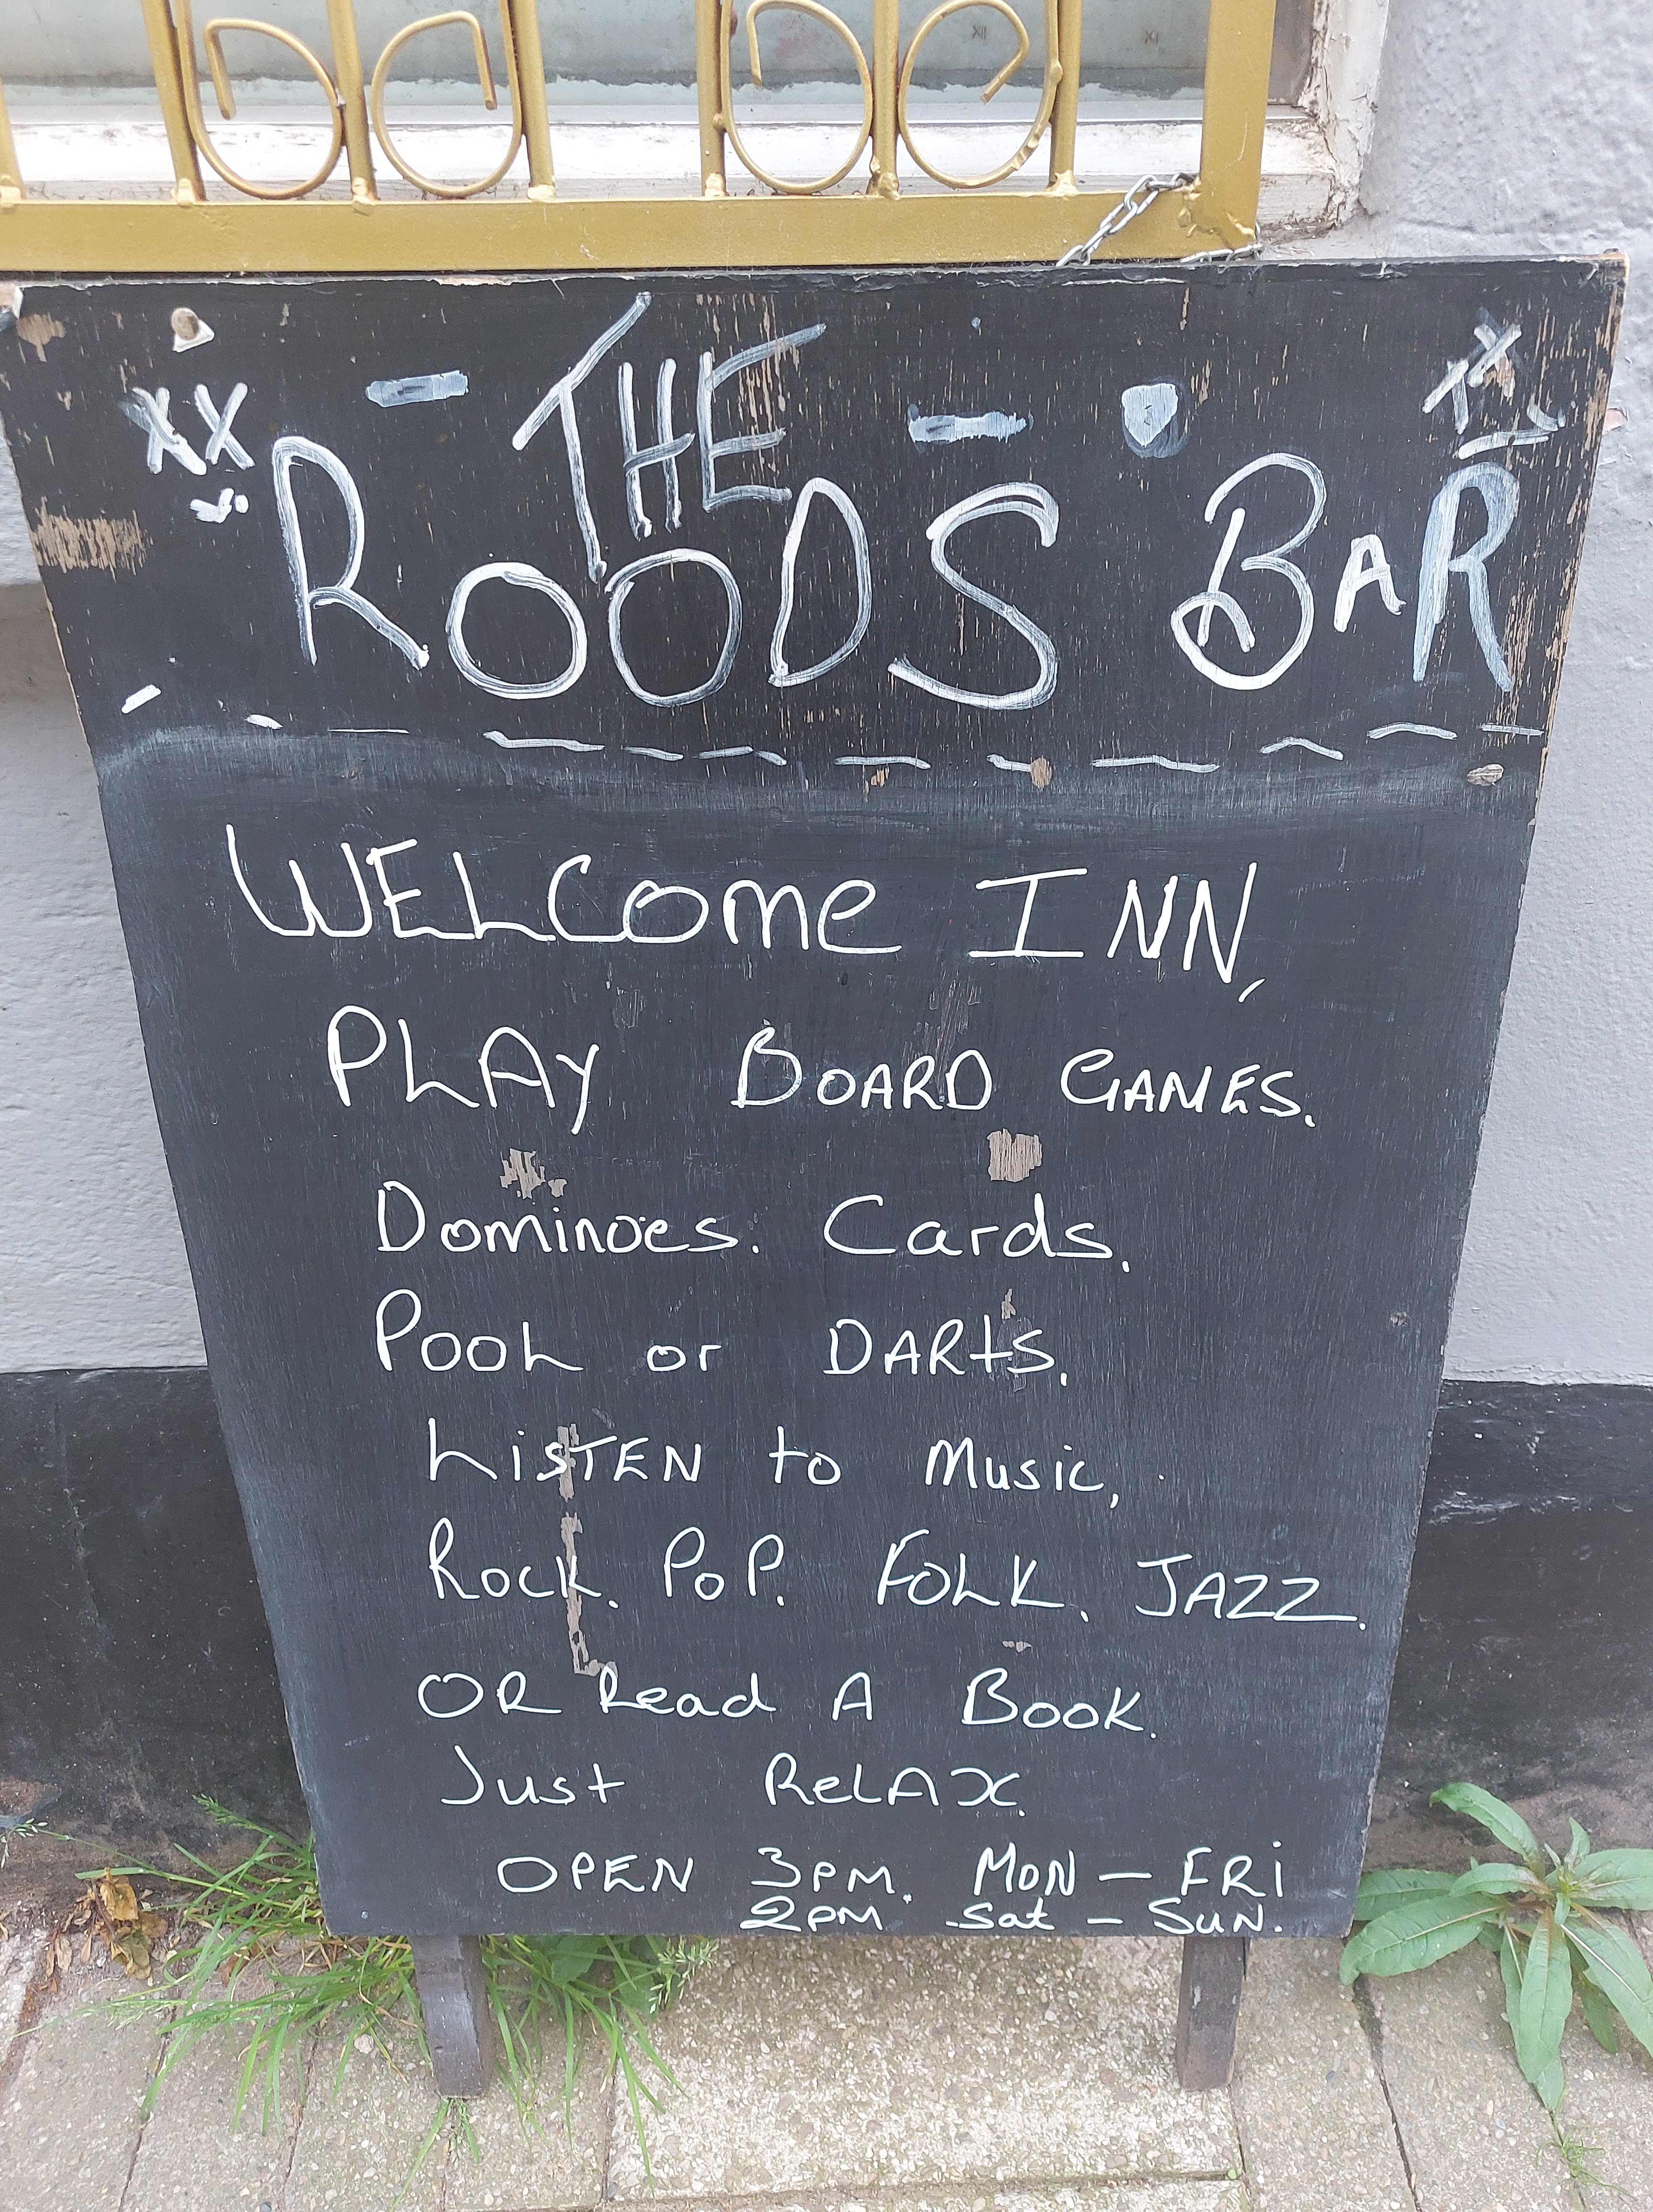 XX - THE - XX
ROODS BAR
WELCOME INN,
PLAY BOARD GAMES.
Dominoes. Cards,
POOL or DARTS,
LISTEN to Music,
ROCK. POP. FOLK. JAZZ.
OR Read A BOOK.
Just RELAX.
OPEN 3PM. MON — FRI
2PM Sat — SUN.